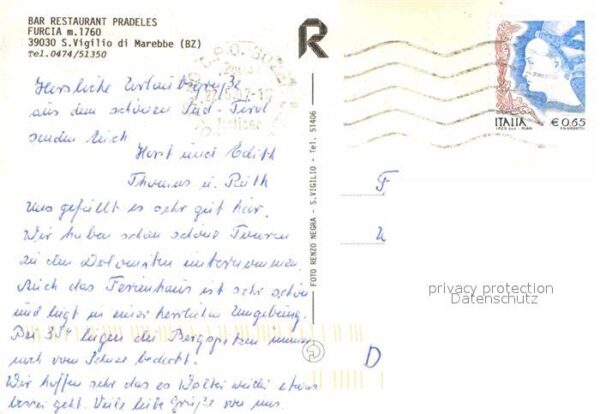 BAR RESTAURANT PRADELES
FURCIA m.1760
39030 S.Vigilio di Marebbe (BZ)
Tel.0474/51350
Herzliche Urlaubsgrüße
aus dem schönen Süd Tirol
senden Euch
Horst und Edith
Thomas u. Ruth
Uns gefällt es sehr gut hier.
Wir haben schon schöne Touren
zu den Dolomiten unternommen.
Auch das Ferienhaus ist sehr schön
und liegt in einer herrlichen Umgebung.
Bei 35° liegen die Bergspitzen immer
noch vom Schnee bedeckt.
Wir hoffen sehr das es Walter wieder etwas
besser geht. Viele liebe Grüße von uns.
R
FOTO RENZO NEGRA - S.VIGILIO - Tel. 51406
ITALIA € 0,65
F
D
privacy protection
Datenschutz